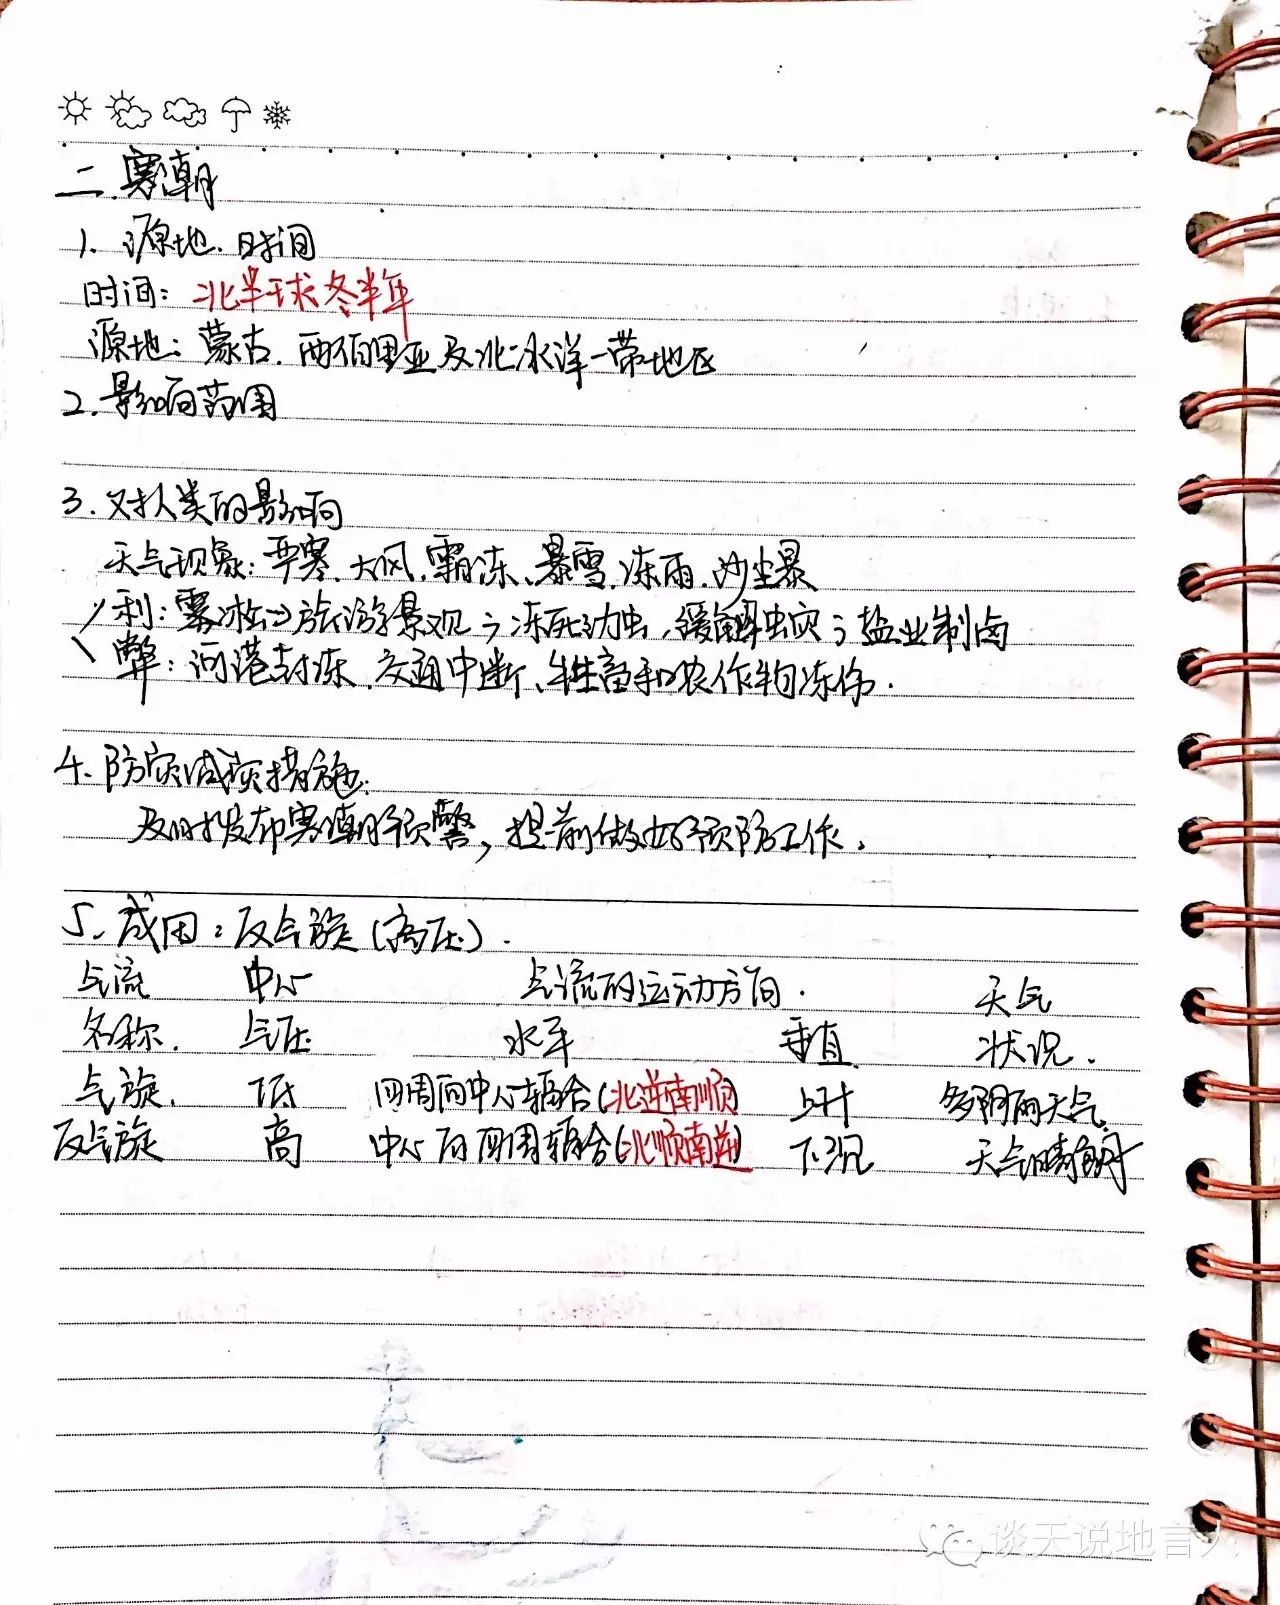 二.寒潮
1. 源地.时间
时间：北半球冬半年
源地：蒙古.西伯里亚及北冰洋一带地区
2.影响范围
3.对人类的影响
天气现象：严寒、大风、霜冻、暴雪、冻雨、沙尘暴
利：雾凇⇒旅游景观；冻死幼虫，缓解虫灾；盐业制卤
弊：河港封冻、交通中断、牲畜和农作物冻伤.
4.防灾减灾措施.
及时发布寒潮预警，提前做好预防工作.
5.成因：反气旋(高压).
气流 中心 气流的运动方向. 天气
名称. 气压 水平 垂直 状况.
气旋. 低 四周向中心辐合(北逆南顺) 上升 多阴雨天气.
反气旋 高 中心向四周辐合(北顺南逆) 下沉 天气晴朗
谈天说地言人